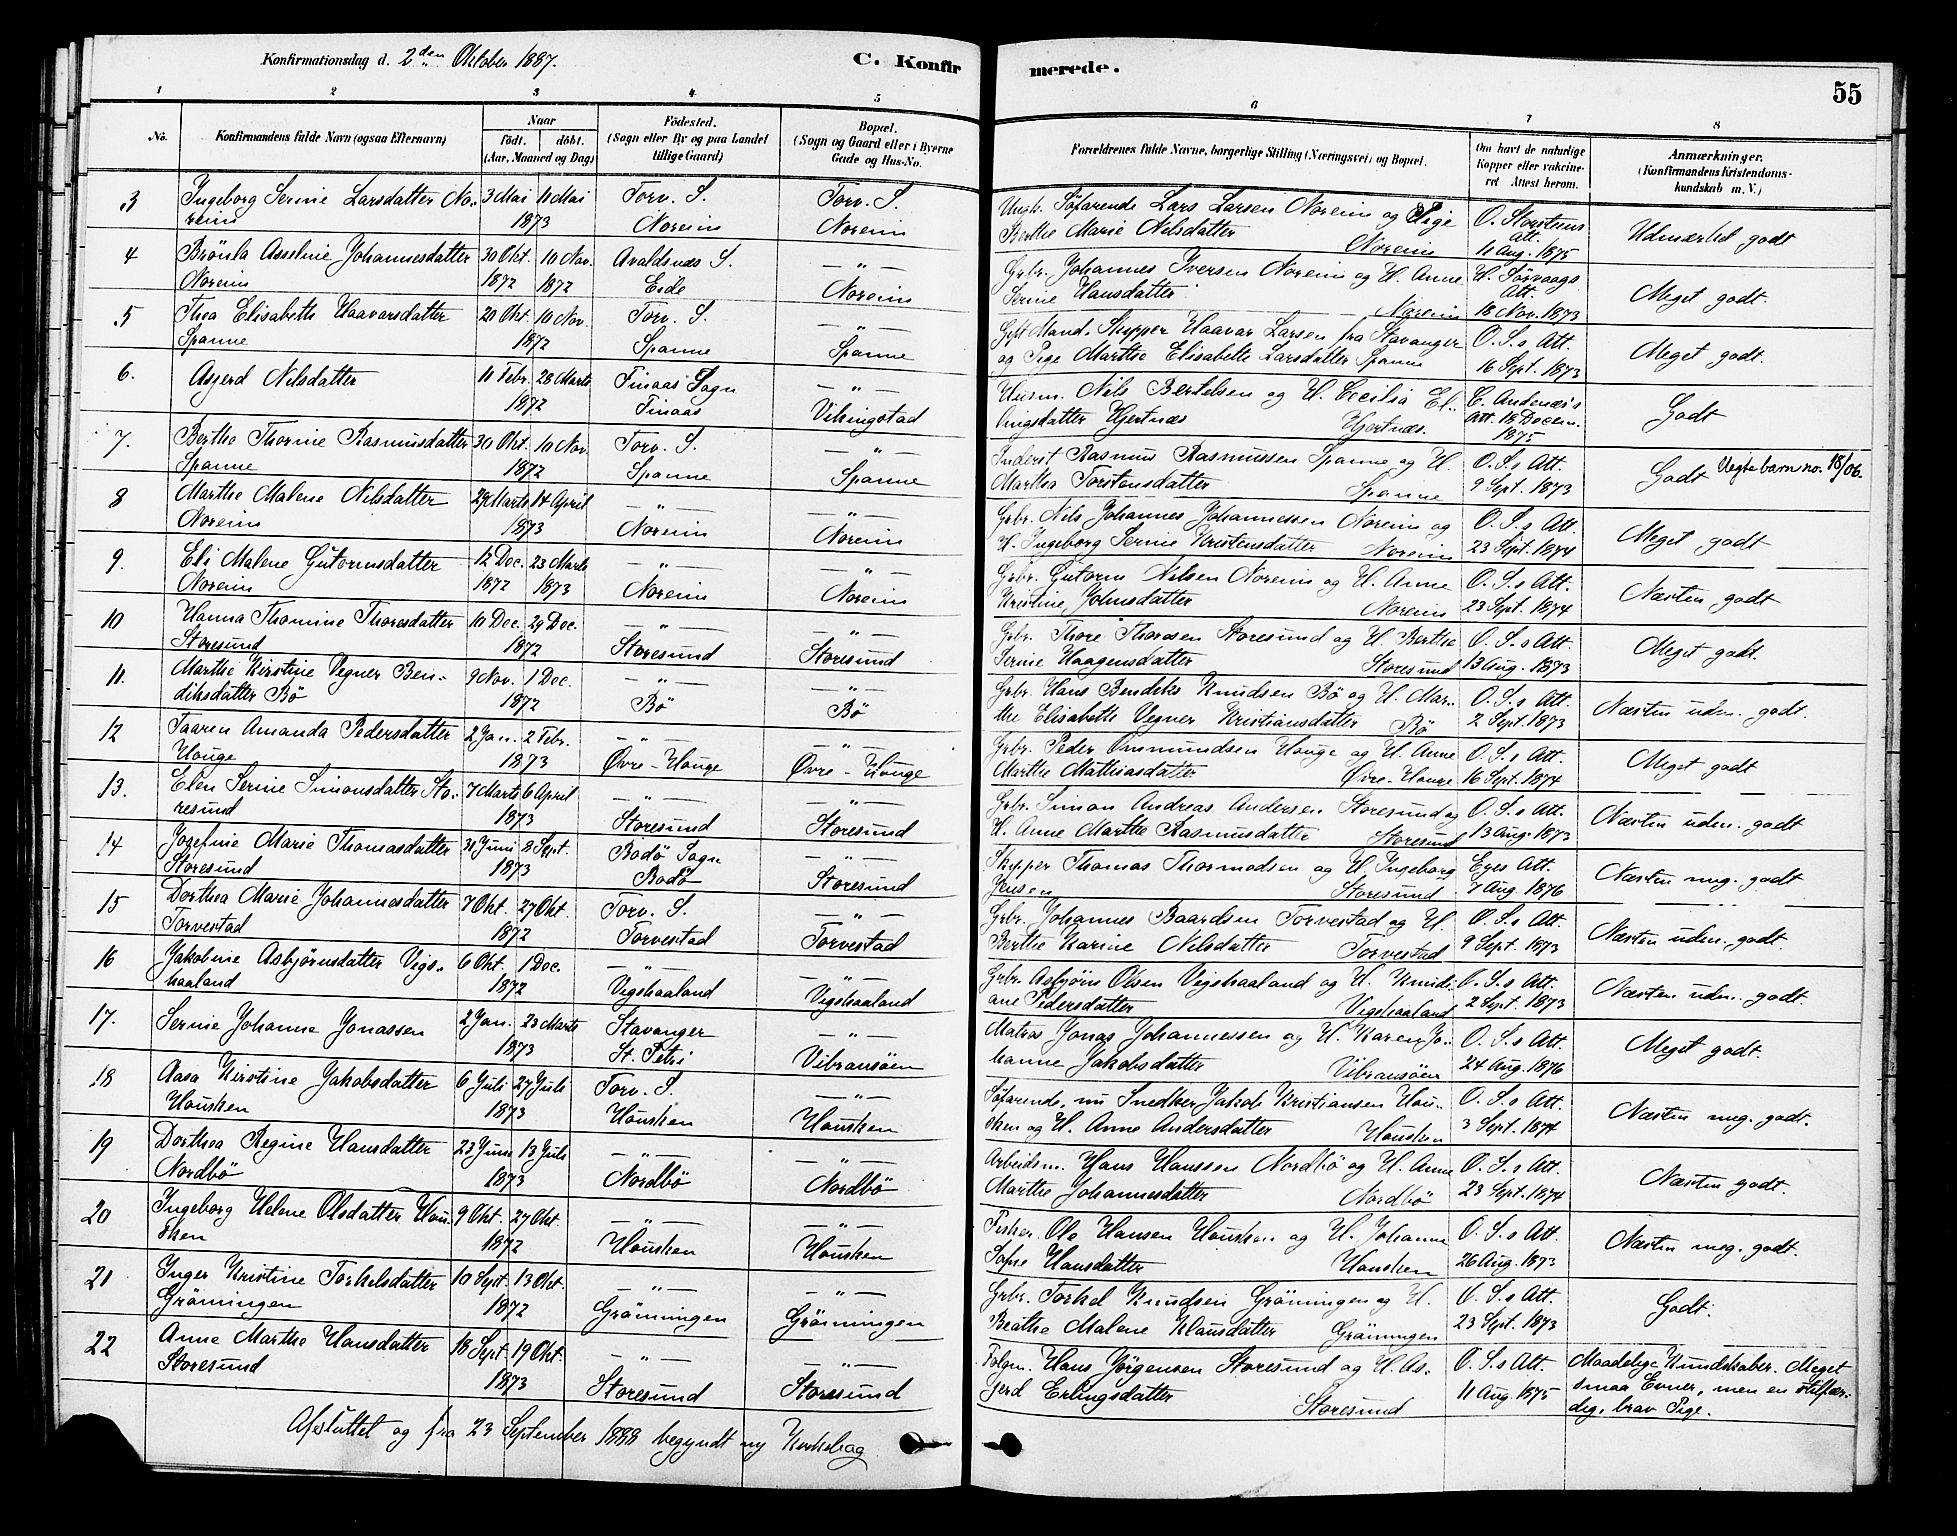 Konfirmationsdag d. 2den Oktober 1887.
C. Konfirmerede.
55
1 2 3 4 5 6 7 8
No. Konfirmandens fulde Navn (ogsaa Efternavn) Naar født. døbt. (Aar, Maaned og Dag) Fødested. (Sogn eller By og paa Landet tillige Gaard) Bopæl. (Sogn og Gaard eller i Byerne Gade og Hus-No. Forældrenes fulde Navne, borgerlige Stilling (Næringsvei) og Bopæl. Om havt de naturlige Kopper eller vakcineret Attest herom. Anmærkninger. (Konfirmandens Kristendomskundskab m. V.)
3 Ingeborg Serine Larsdatter No- 3 Mai 11 Mai Torv. S. Torv. S. Ungk. Söfarende Lars Larsen Noreim og Pige O. Storstens Att. Udmærket godt
reim 1873 Noreim Noreim Berthe Marie Nilsdatter Noreim 11 Aug. 1875
4 Brönla Asseline Johannesdatter 30 Okt. 10 Nov. Avaldsnæs S. — " — Grbr. Johannes Iversen Noreim og H. Anne H. Sörvaags Att. Meget godt.
Noreim 1872 1872 Eide Noreim Serine Hansdatter Noreim 18 Nov. 1873
5 Thea Elisabeth Haavarsdatter 20 Okt. 10 Nov. Torv. S. — " — Gift Mand. Skipper Haavar Larsen fra Stavanger O. S.s Att. Meget godt.
Spanne 1872 Spanne Spanne og Pige Marthe Elisabeth Larsdatter Spanne 16 Sept. 1873
6. Asgerd Nilsdatter 11 Febr. 28 Marts Finaas Sogn — " — Husm. Nils Bertelsen og H. Cecilia El- C. Andenæs's Godt
1872 Finaas Vikingstad lingsdatter Hjertnæs Hjertnæs. Att. 18 Decem. 1875
7. Berthe Thorine Rasmusdatter 30 Okt. 10 Nov. Torv. S. — " — Inderst Rasmus Rasmussen Spanne og H. O. S.s Att. Godt Vegtebarn no. 18/06.
Spanne 1872 Spanne Spanne Martha Torstensdatter Spanne 9 Sept. 1873
8 Marthe Malene Nilsdatter 29 Marts 14 April — " — — " — Grbr. Nils Johannes Johannessen Noreim og O. S.s Att. Meget godt
Noreim 1873 Noreim Noreim H. Ingeborg Serine Kristensdatter Noreim 23 Sept. 1874
9. Eli Malene Gutormsdatter 12 Dec. 23 Marts — " — — " — Grbr. Gutorm Nilsen Noreim og H. Anne O. S.s Att. Næsten godt
Noreim 1872 1873 Noreim Noreim Kristine Johnsdatter Noreim 23 Sept. 1874
10 Hanna Thomine Thoresdatter 10 Dec. 29 Dec. — " — — " — Grbr. Thore Thoresen Storesund og H. Berthe O. S.s Att. Meget godt.
Storesund 1872 Storesund Storesund Serine Haagensdatter Storesund 13 Aug. 1873
11. Marthe Kirstine Vegner Ben- 9 Nov. 1 Dec. — " — — " — Grbr. Hans Bendeks Knudsen Bö og H. Mar- O. S.s Att. Næsten udm. godt.
diksdatter Bö 1872 Bö Bö the Elisabeth Vegner Kristiansdatter Bö 2 Sept. 1873
12 Taaren Amanda Pedersdatter 2 Jan. 2 Febr. — " — — " — Grbr. Peder Ommundsen Houge og H. Anne O. S.s Att. Meget godt
Houge 1873 Øvre-Houge Øvre-Houge Marthe Mathiasdatter Øvre-Houge 16 Sept. 1874
13. Elen Serine Simonsdatter Sto- 7 Marts 6 April — " — — " — Grbr. Simon Andreas Andersen Storesund og O. S.s Att. Næsten udm. godt
resund 1873 Storesund Storesund H. Anne Marthe Rasmusdatter Storesund 13 Aug. 1873
14 Josefine Marie Thomasdatter Juni 8 Sept. Bodö Sogn — " — Skipper Thomas Thormodsen og H. Ingeborg Eyes Att. Næsten meg. godt
Storesund 1873 Bodö Storesund Jensen Storesund 7 Aug. 1876
15 Dorthea Marie Johannesdatter 7 Okt. 27 Okt. Torv. S. — " — Grbr. Johannes Baardsen Torvestad og H. O. S.s Att. Næsten udm. godt
Torvestad 1872 Torvestad Torvestad Berthe Karine Nilsdatter Torvestad 9 Sept. 1873
16 Jakobine Asbjörnsdatter Vigs- 6 Okt. 1 Dec. — " — — " — Grbr. Asbjörn Olsen Vigshaaland og H. Knudi- O. S.s Att. Næsten udm. godt.
haaland 1872 Vigshaaland Vigshaaland ane Pedersdatter Vigshaaland 2 Sept. 1873
17. Serine Johanne Jonassen 2 Jan. 23 Marts Stavanger — " — Matros Jonas Johannessen og H. Karen Jo- O. S.s Att. Meget godt.
1873 St. Petri Vibransöen hanne Jakobsdatter Vibransöen 24 Aug. 1876
18 Aasa Kirstine Jakobsdatter 6 Juli 27 Juli Torv. S. — " — Söfarende, nu Snedker Jakob Kristiansen Hou- O. S.s Att. Næsten meg. godt.
Housken 1873 Housken Housken sken og H. Anne Andersdatter Housken 3 Sept. 1874
19 Dorthea Regine Hansdatter 23 Juni 13 Juli — " — — " — Arbeidsm. Hans Hanssen Nordbö og H. Anne O. S.s Att. Næsten godt.
Nordbö 1873 Nordbö Nordbö Marthe Johannesdatter Nordbö 23 Sept. 1874
20 Ingeborg Helene Olsdatter Hou- 9 Okt. 27 Okt. — " — — " — Fisker Ole Hansen Housken og H. Johanne O. S.s Att. Næsten meg. godt.
sken 1872 Housken Housken Sofie Hansdatter Housken 26 Aug. 1873
21 Inger Kristine Torkelsdatter 10 Sept. 13 Okt. — " — — " — Grbr. Torkel Knudsen Grönningen og H. O. S.s Att. Godt.
Grönningen 1872 Grönningen Grönningen Beathe Malene Klausdatter Grönningen 23 Sept. 1873
22 Anne Marthe Hansdatter 18 Sept. 19 Okt. — " — — " — Folgm. Hans Jörgensen Storesund og H. As- O. S.s Att. Maadelige Kundskaber. Meget
Storesund 1873 Storesund Storesund gerd Erlingsdatter Storesund 11 Aug. 1875 smaa Evner, men en stilfær-
dig, brav Pige.
Afsluttet og fra 23 September 1888 begyndt ny Kirkebog